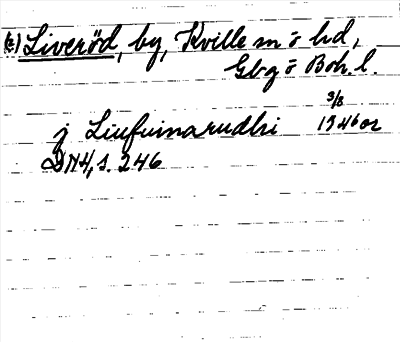 (c) Liveröd, by, Kville sn o hd,
Gbg o Boh. l.
3/8
j Liufuinarudhi 1346 or
DN 4, s. 246